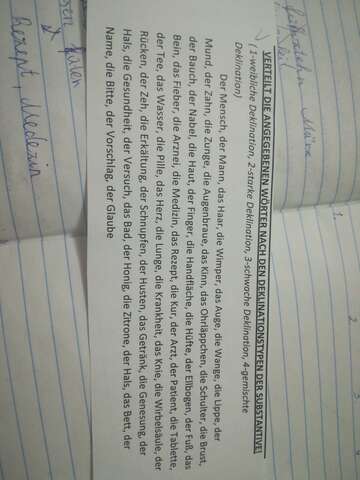 VERTEILT DIE ANGEGEBENEN WÖRTER NACH DEN DEKLINATIONSTYPEN DER SUBSTANTIVE!
(1-weibliche Deklination, 2-starke Deklination, 3-schwache Deklination, 4-gemischte
Deklination)
Der Mensch, der Mann, das Haar, die Wimper, das Auge, die Wange, die Lippe, der
Mund, der Zahn, die Zunge, die Augenbraue, das Kinn, das Ohrläppchen, die Schulter, die Brust,
der Bauch, der Nabel, die Haut, der Finger, die Handfläche, die Hüfte, der Ellbogen, der Fuß, das
Bein, das Fieber, die Arznei, die Medizin, das Rezept, die Kur, der Arzt, der Patient, die Tablette,
der Tee, das Wasser, die Pille, das Herz, die Lunge, die Krankheit, das Knie, die Wirbelsäule, der
Rücken, der Zeh, die Erkältung, der Schnupfen, der Husten, das Getränk, die Genesung, der
Hals, die Gesundheit, der Versuch, das Bad, der Honig, die Zitrone, der Hals, das Bett, der
Name, die Bitte, der Vorschlag, der Glaube
Rezept, Medezin
1
3